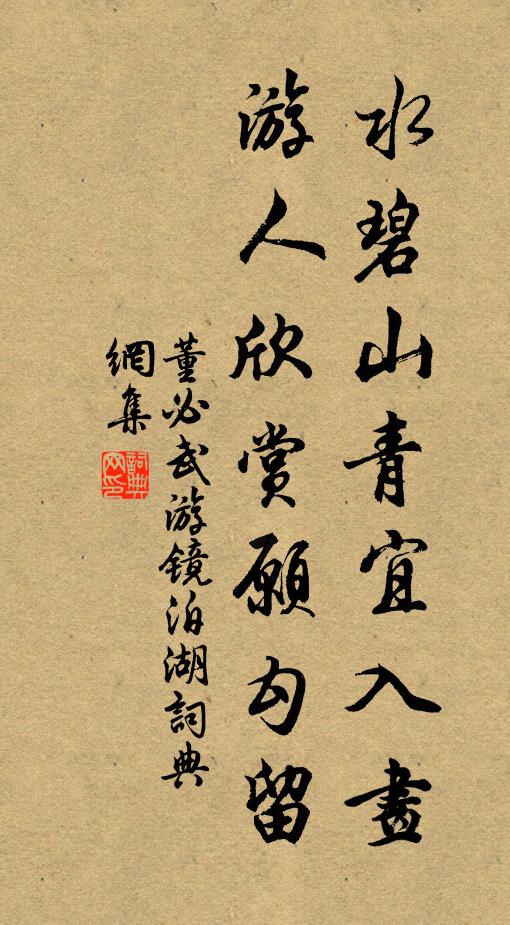 水碧山青宜入畫
游人欣赏願勾留
董必武游鏡泊湖詞典
網集
詞典
网印